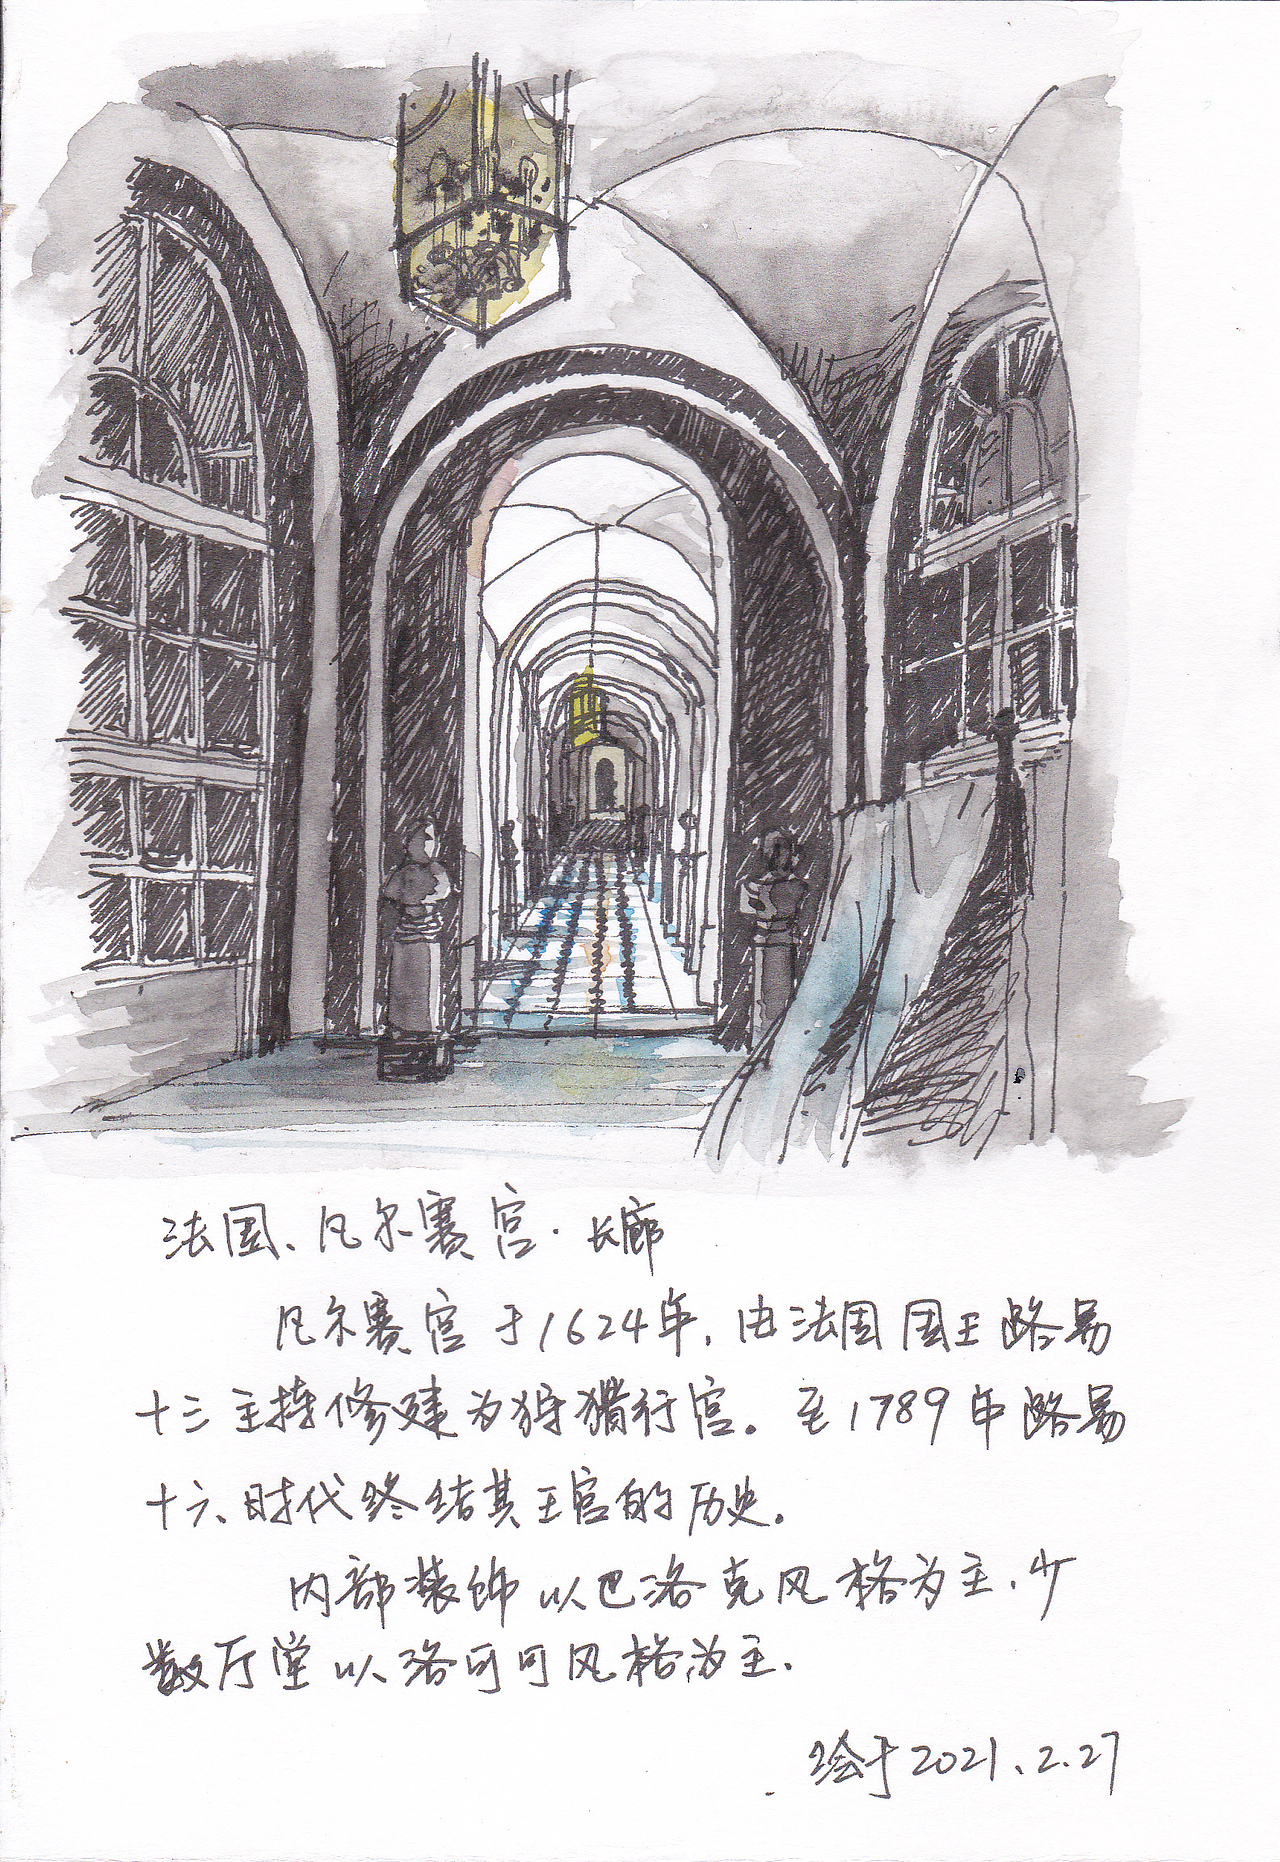 法国、凡尔赛宫·长廊
凡尔赛宫于1624年，由法国国王路易
十三主持修建为狩猎行宫。至1789年路易
十六时代终结其王宫的历史。
内部装饰以巴洛克风格为主，少
数厅堂以洛可可风格为主.
绘于2021.2.27